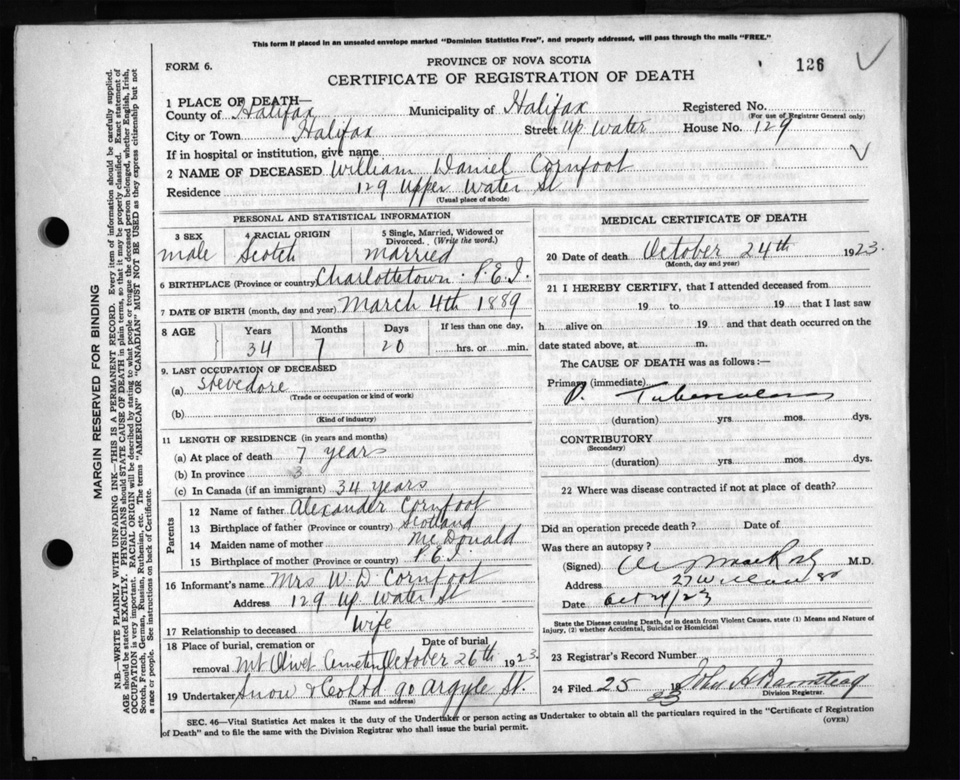 This form if placed in an unsealed envelope marked "Dominion Statistics Free", and properly addressed, will pass through the mails "FREE."
FORM 6.
PROVINCE OF NOVA SCOTIA
CERTIFICATE OF REGISTRATION OF DEATH
126
1 PLACE OF DEATH—
County of Halifax Municipality of Halifax Registered No.
(For use of Registrar General only)
City or Town Halifax Street Up Water House No. 129
If in hospital or institution, give name
2 NAME OF DECEASED William Daniel Cornfoot
Residence 129 Upper Water St
(Usual place of abode)
PERSONAL AND STATISTICAL INFORMATION
3 SEX 4 RACIAL ORIGIN 5 Single, Married, Widowed or Divorced. (Write the word.)
male Scotch married
6 BIRTHPLACE (Province or country) Charlottetown P.E.I.
7 DATE OF BIRTH (month, day and year) March 4th 1889
8 AGE Years Months Days If less than one day,
34 7 20 hrs. or min.
9. LAST OCCUPATION OF DECEASED
(a) Stevedore
(Trade or occupation or kind of work)
(b)
(Kind of industry)
11 LENGTH OF RESIDENCE (in years and months)
(a) At place of death 7 years
(b) In province 3
(c) In Canada (if an immigrant) 34 years
Parents
12 Name of father Alexander Cornfoot
13 Birthplace of father (Province or country) Scotland
14 Maiden name of mother McDonald
15 Birthplace of mother (Province or country) P.E.I.
16 Informant's name Mrs W. D. Cornfoot
Address 129 Up Water St
17 Relationship to deceased Wife
18 Place of burial, cremation or removal Mt Olivet Cemetery Date of burial October 26th 1923.
19 Undertaker Snow & Co Ltd 90 Argyle St.
(Name and address)
MEDICAL CERTIFICATE OF DEATH
20 Date of death October 24th 1923.
(Month, day and year)
21 I HEREBY CERTIFY, that I attended deceased from
19 to 19 that I last saw
h alive on 19 and that death occurred on the
date stated above, at m.
The CAUSE OF DEATH was as follows:—
Primary (immediate)
P. Tuberculosis
(duration) yrs. mos. dys.
CONTRIBUTORY
(Secondary)
(duration) yrs. mos. dys.
22 Where was disease contracted if not at place of death?
Did an operation precede death? Date of
Was there an autopsy?
(Signed) M.D.
Address 27
Date Oct 24/23
State the Disease causing Death, or in death from Violent Causes, state (1) Means and Nature of Injury, (2) whether Accidental, Suicidal or Homicidal
23 Registrar's Record Number
24 Filed 25 19 23 John H Barnstead
Division Registrar.
SEC. 46—Vital Statistics Act makes it the duty of the Undertaker or person acting as Undertaker to obtain all the particulars required in the "Certificate of Registration of Death" and to file the same with the Division Registrar who shall issue the burial permit.
(OVER)
MARGIN RESERVED FOR BINDING
N.B.—WRITE PLAINLY WITH UNFADING INK—THIS IS A PERMANENT RECORD. Every item of information should be carefully supplied.
AGE should be stated EXACTLY. PHYSICIANS should STATE CAUSE OF DEATH in plain terms, so that it may be properly classified. Exact statement of
OCCUPATION is very important. RACIAL ORIGIN will be described by stating to what people or tongue the deceased person belonged, whether English, Irish,
Scotch, French, German, Russian, Ruthenian, etc. The terms "AMERICAN" OR "CANADIAN" MUST NOT BE USED as they express citizenship but not
a race or people. See instructions on back of Certificate.